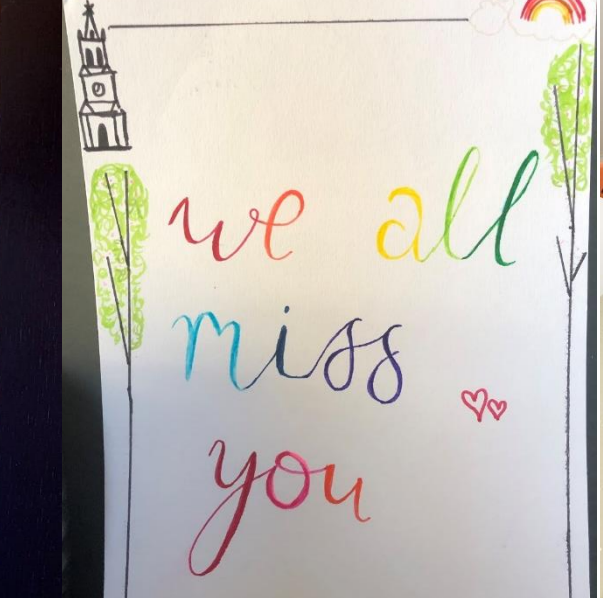 we all
miss
you